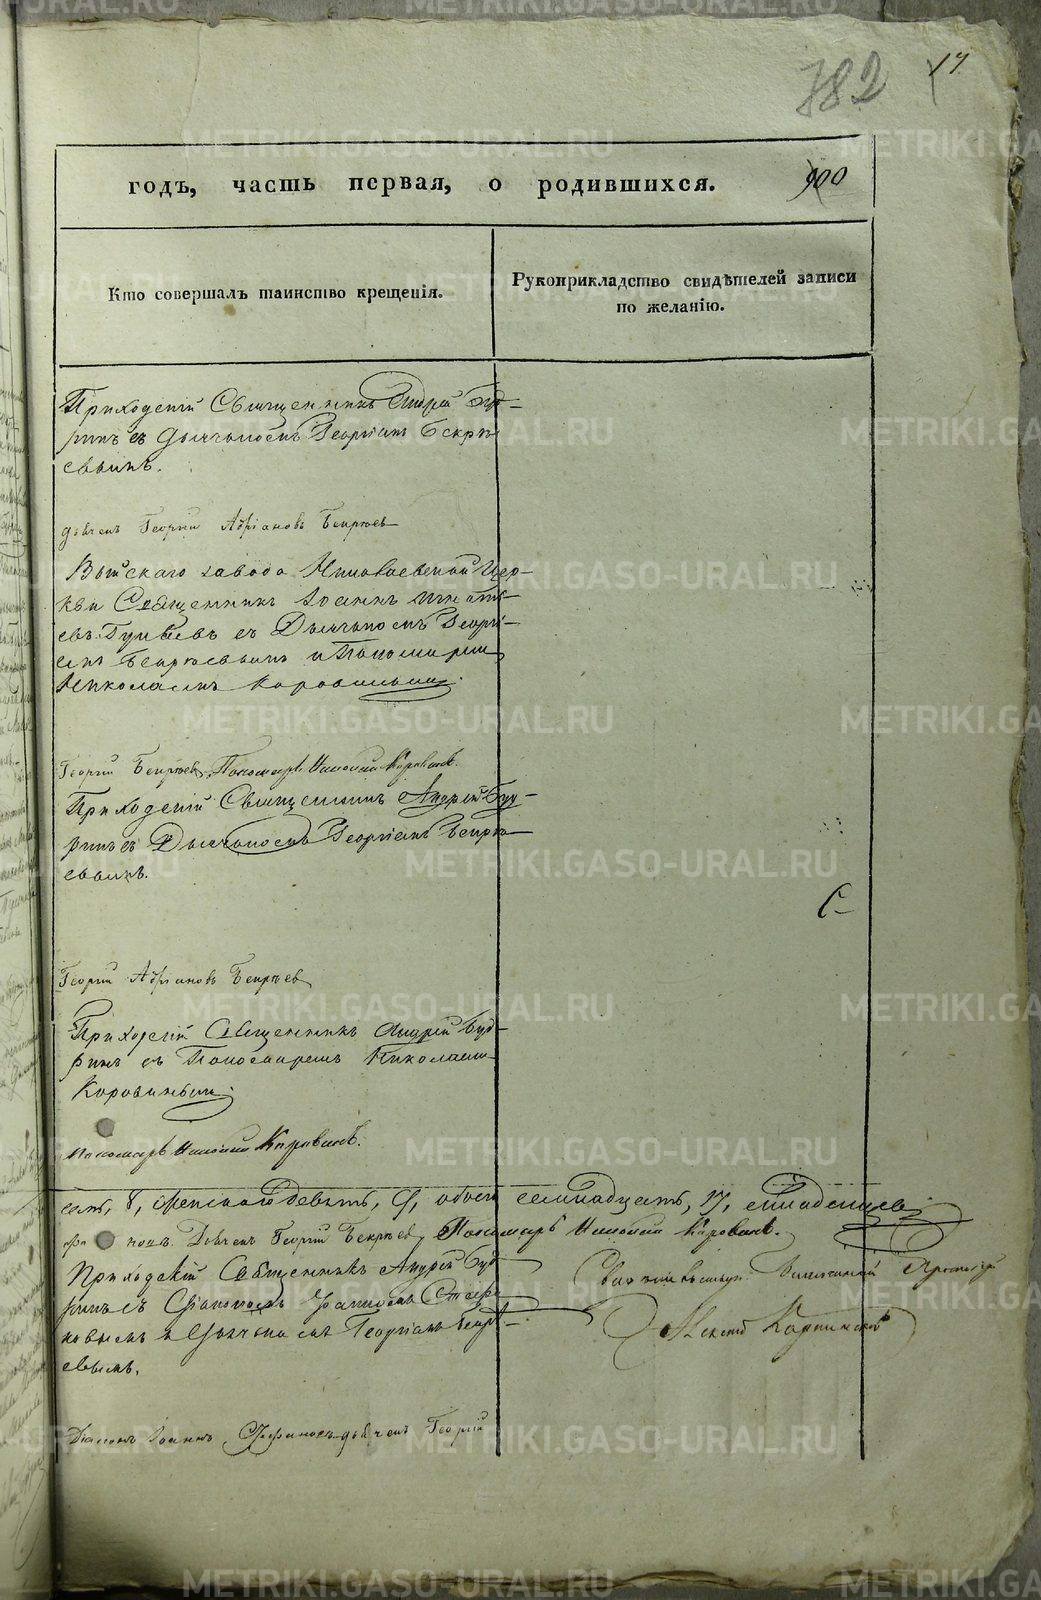 782 17
годъ, часть первая, о родившихся. 900
Кто совершалъ таинство крещенія.
Рукоприкладство свидѣтелей записи
по желанію.
Приходскій Священникъ Андрей Буд-
ринъ съ Дьячькомъ Георгіемъ Бекрѣ
евымъ.
дьячекъ Георгій Адріановъ Бекрѣевъ
Вытскаго завода Николаевской Цер-
кви Священникъ Іоаннъ Игнать-
евъ съ Дьячькомъ Георгі-
емъ Бекрѣевымъ и Пономаремъ
Николаемъ Коровинымъ.
Георгій Бекрѣевъ, Пономарь Николай Коровинъ.
Приходскій Священникъ Андрей Буд-
ринъ съ Дьячькомъ Георгіемъ Бекрѣ
евымъ.
Георгій Адріановъ Бекрѣевъ
Приходскій Священникъ Андрей Буд-
ринъ съ Пономаремъ Николаемъ
Коровинымъ.
Пономарь Николай Коровинъ.
8, женскаго девять, 9, обоего семнадцать, 17, младенцевъ
Дьячекъ Георгій Бекрѣевъ, Пономарь Николай Коровинъ.
Приходскій Священникъ Андрей Буд
ринъ съ Діакономъ Іоанномъ Стефа
новымъ и Дьячькомъ Георгіемъ Бекрѣ-
евымъ.
Алексій Карпинскій
Діаконъ Іоаннъ Стефановъ дьячекъ Георгій
METRIKI.GASO-URAL.RU